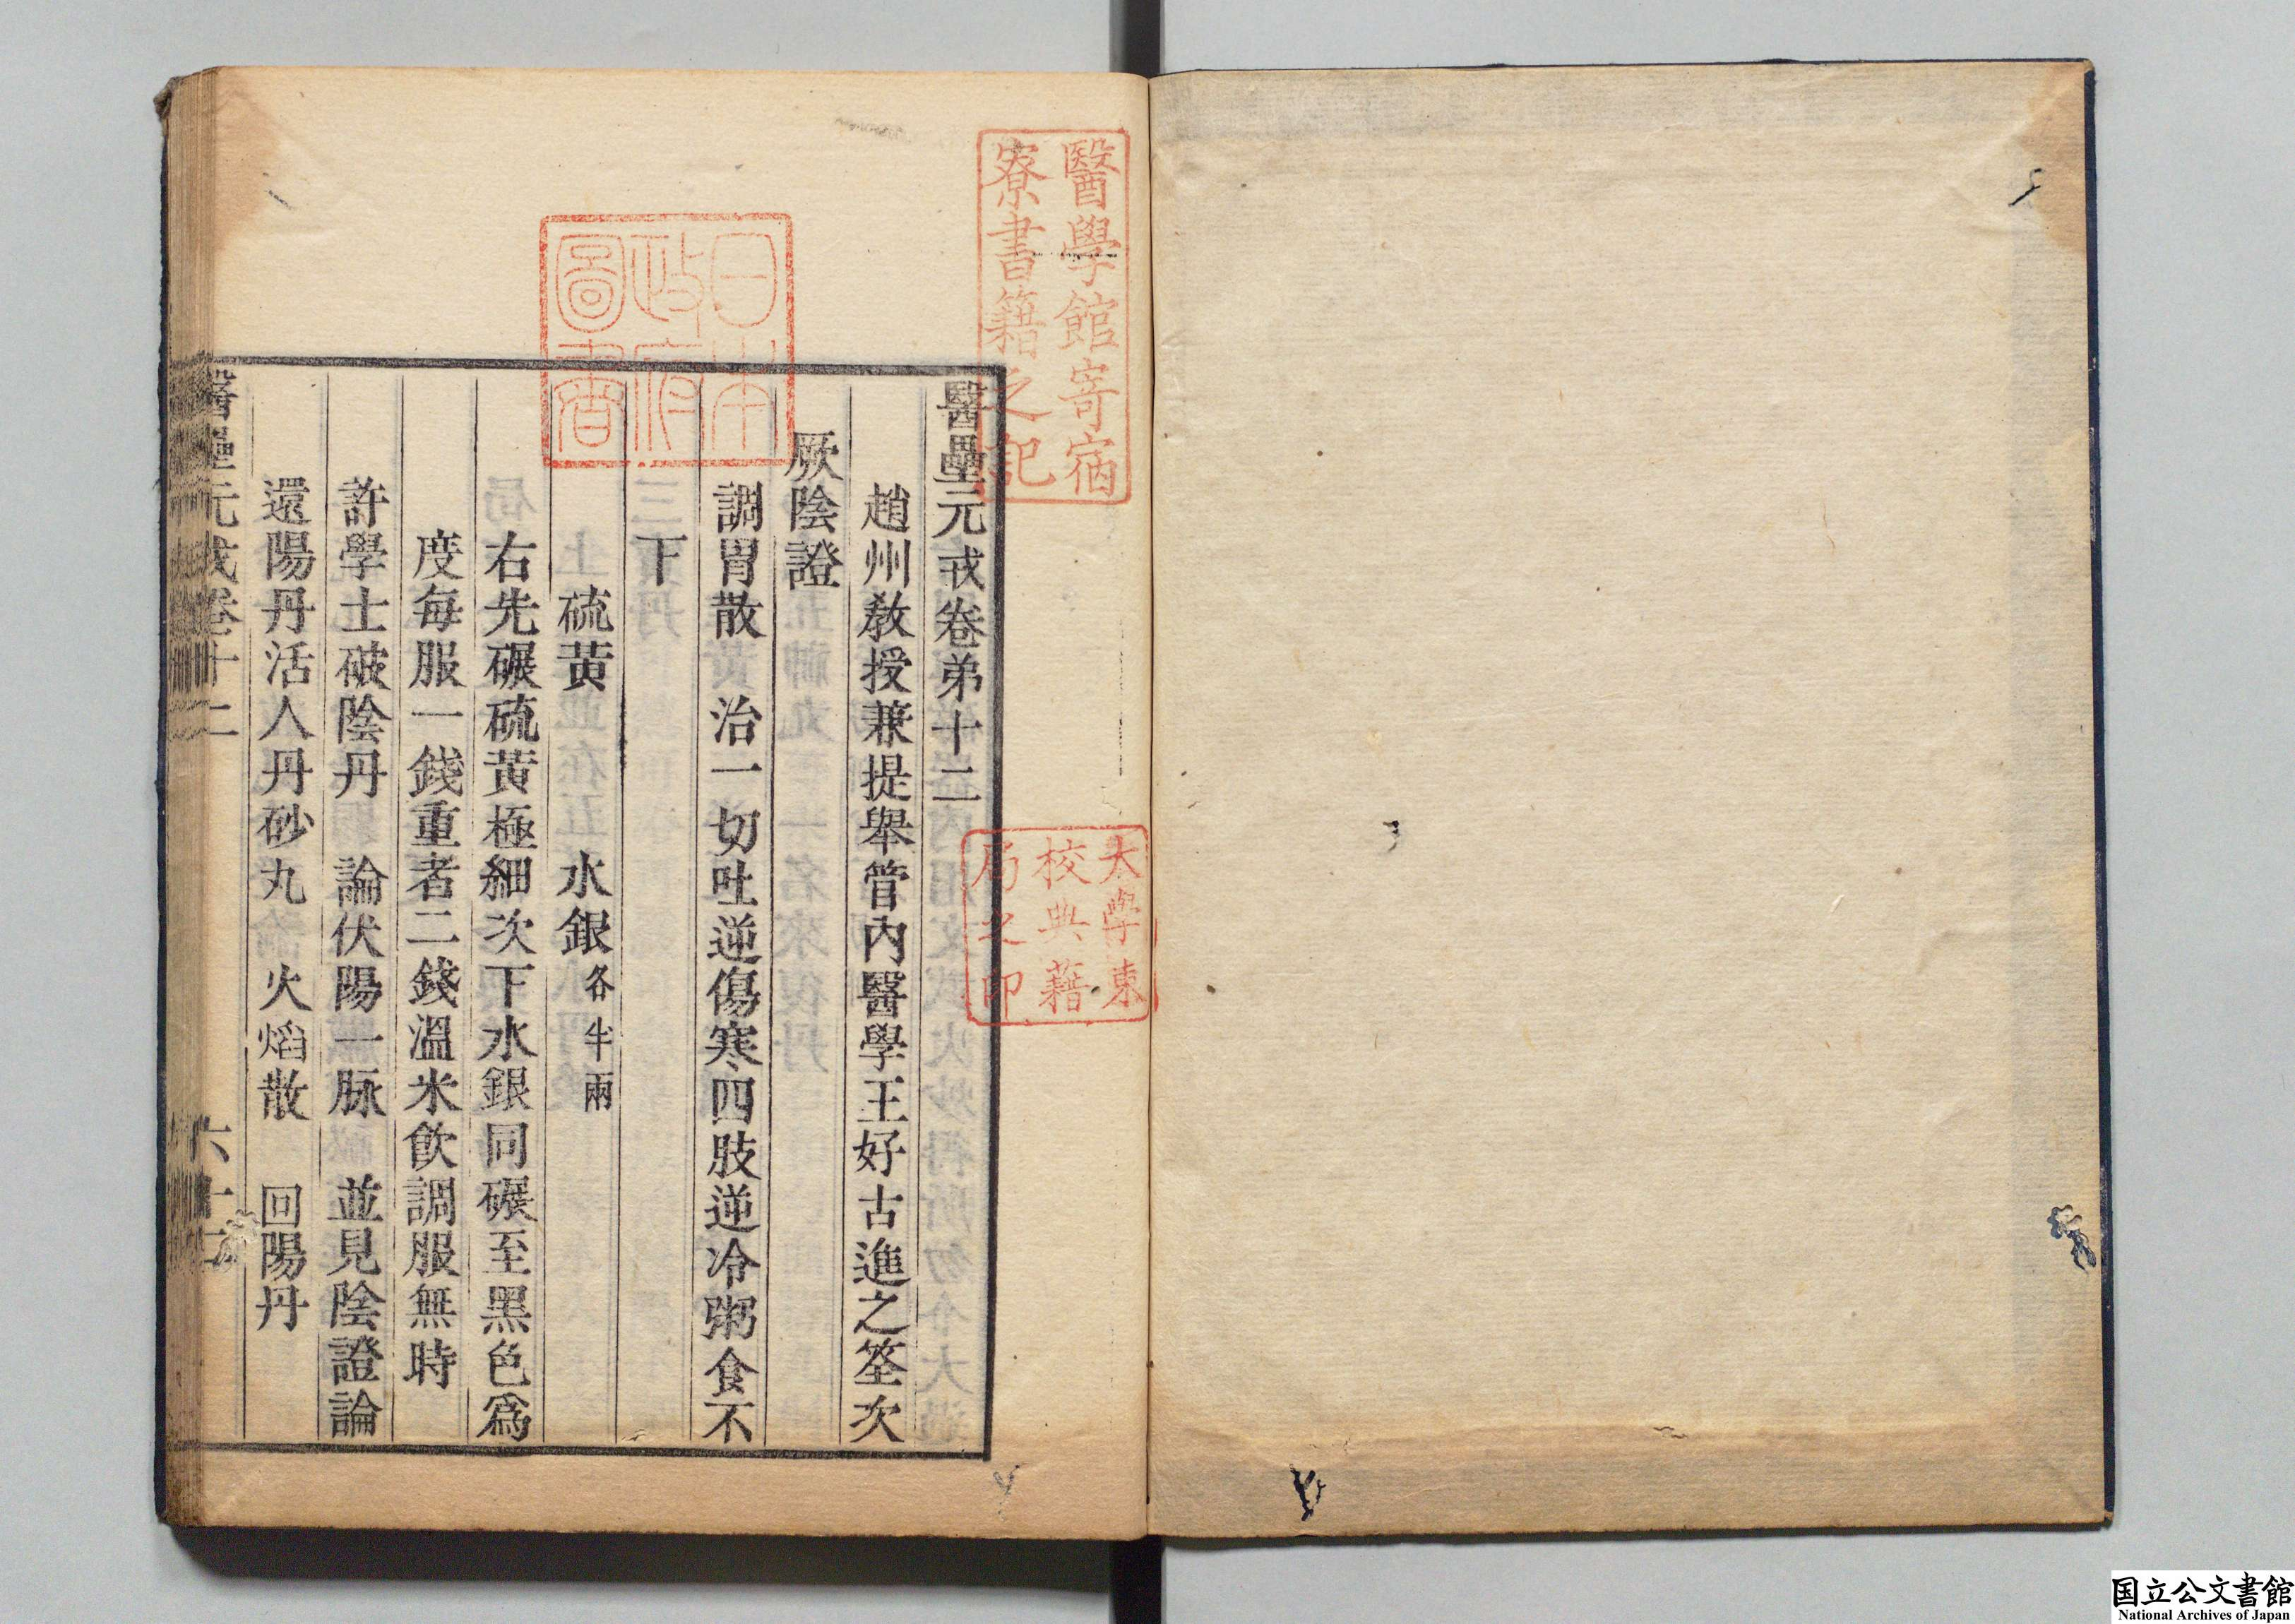 醫學館寄宿
寮書籍之記
日本
政府
圖書
大學東
校典籍
局之印
醫壘元戎卷弟十二
趙州教授兼提舉管內醫學王好古進之筌次
厥陰證
調胃散　治一切吐逆傷寒四肢逆冷粥食不
下
硫黄　水銀各半兩
右先碾硫黄極細次下水銀同碾至黑色爲
度每服一錢重者二錢溫米飲調服無時
許學士破陰丹　論伏陽一脉　並見陰證論
還陽丹活人丹砂丸　火熖散　回陽丹
醫壘元戎卷十二
国立公文書館
National Archives of Japan